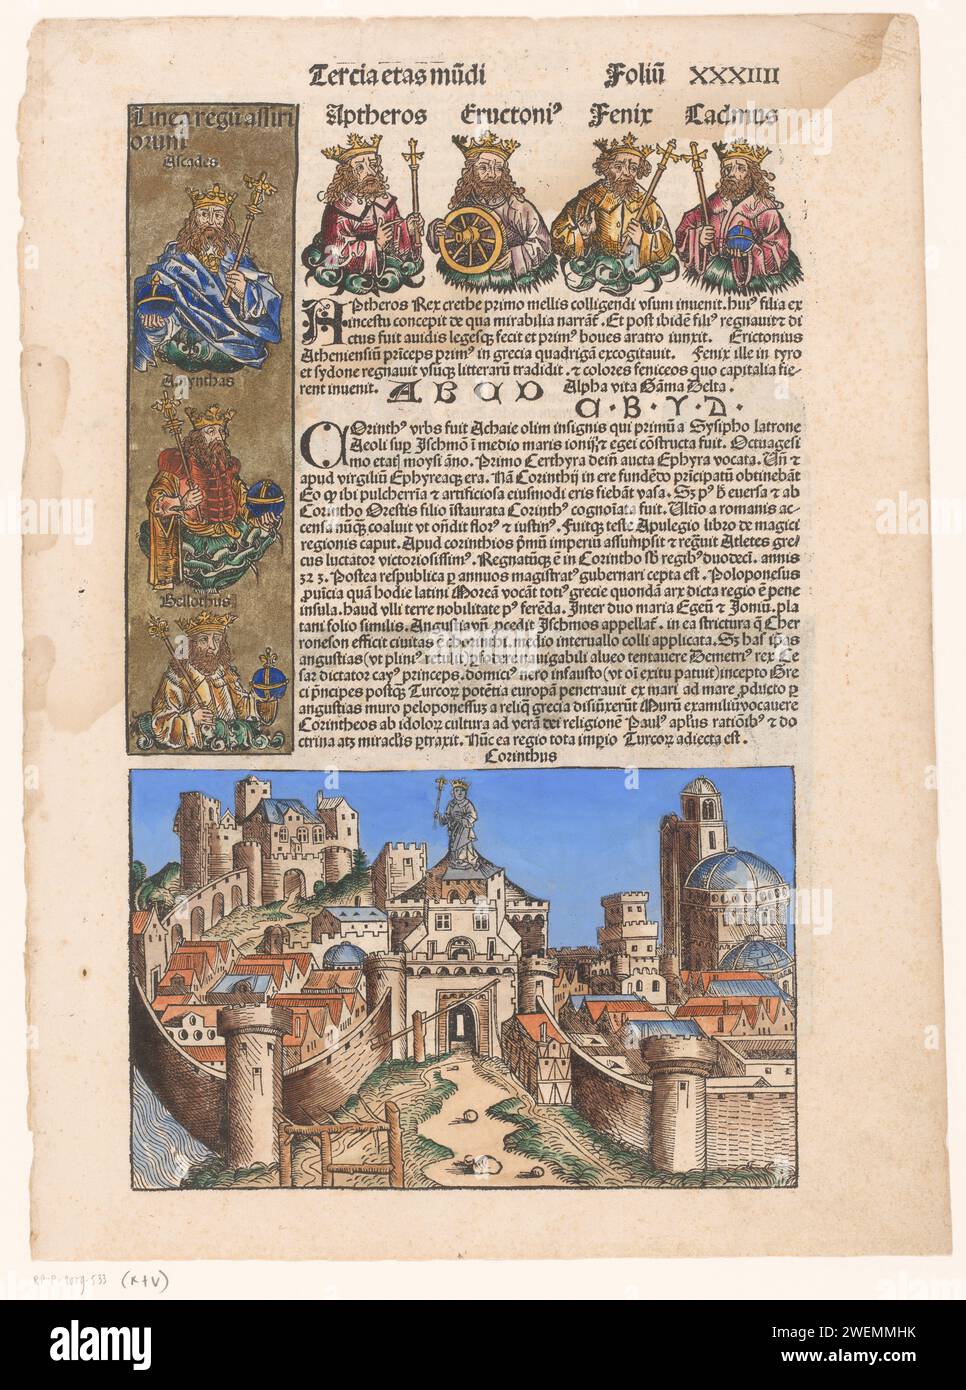 Tercia etas mūdi Foliū XXXIIII
Linea regū assiri
orum
Ascades
Amynthas
Bellothus
Aptheros Eructoniꝰ Fenix Cadmus
APtheros Rex crethe primo mellis colligendi vsum inuenit. huiꝰ filia ex
incestu concepit de qua mirabilia narrāt. Et post ibidē filiꝰ regnauit & di
ctus fuit auidis legesqꝫ fecit et primꝰ boues aratro iunxit. Erictonius
Atheniensiū prīceps primꝰ in grecia quadrigā excogitauit. Fenix ille in tyro
et sydone regnauit vsūqꝫ litterarū tradidit. & colores feniceos quo capitalia fie-
rent inuenit. A B C D Alpha vita Gāma Delta.
α · B · Y · D ·
COrinthꝰ vrbs fuit Achaie olim insignis qui primū a Sysipho latrone
Aeoli sup Ischmō ī medio maris ionij & egei cōstructa fuit. Octuagesi
mo etatꝭ moysi āno. Primo Certhyra deīn aucta Ephyra vocata. Vn̄ &
apud virgiliū Ephyreaqꝫ era. Nā Corinthij in ere fundēto prīcipatū obtinebāt
Eo qꝫ ibi pulcherr̄ia & artificiosa eiusmodi eris fiebāt vasa. Sꝫ pꝰ h̄ euersa & ab
Corintho Orestis filio īstaurata Corinthꝰ cognoīata fuit. Vltīo a romanis ac-
censa nūcqꝫ coaluit vt on̄dit florꝰ & iustinꝰ. Fuitqꝫ teste Apulegio libro de magici
regionis caput. Apud corinthios p̄mū imperiū assumpsit & regnuit Atletes gre
cus luctator victoriosissimꝰ. Regnatūqꝫ ē in Corintho sb̄ regibꝰ duodeci. annis
323. Postea respublica p annuos magistratꝰ gubernari cepta est. Poloponesus
puīcia quā hodie latini Moreā vocāt totiꝰ grecie quondā arx dicta regio ē pene
insula. haud vlli terre nobilitate pꝰ ferēda. Inter duo maria Egeū & Ioniū. pla
tani folio similis. Angustia vn̄ pcedit Ischmos appellat̄. in ea strictura qꝫ Cher
roneson efficit ciuitas ē chorinthi. medio interuallo colli applicata. Sꝫ has ip̄as
angustias (vt pliniꝰ retulit) pfodere nauigabili alueo tentauere Demetriꝰ rex Ce
sar dictator cayꝰ princeps. domiciꝰ nero infausto (vt oī exitu patuit) incepto Gre
ci p̄ncipes postqꝫ Turcoꝝ potētia europam penetrauit ex mari ad mare pducto p
angustias muro peloponessuꝫ a reliq̄ grecia disiūxerūt Murū examiliū vocauere
Corintheos ab idoloꝝ cultura ad verā dei religionē Paulꝰ apl̄us ratiōibꝰ & do
ctrina atꝫ miraclis ptraxit. Nūc ea regio tota imp̄io Turcoꝝ adiecta est.
Corinthus
RP-P-2019-533 (R+V)
alamy
Image ID: 2WEMMHK
www.alamy.com